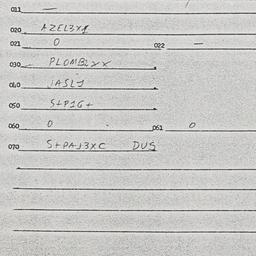 011 —
020 AZEL3X1
021 0 022 —
030 PLOMB2XX
040 JASL1
050 S+P1G+
060 0 061 0
070 S+PAJ3XC DUS